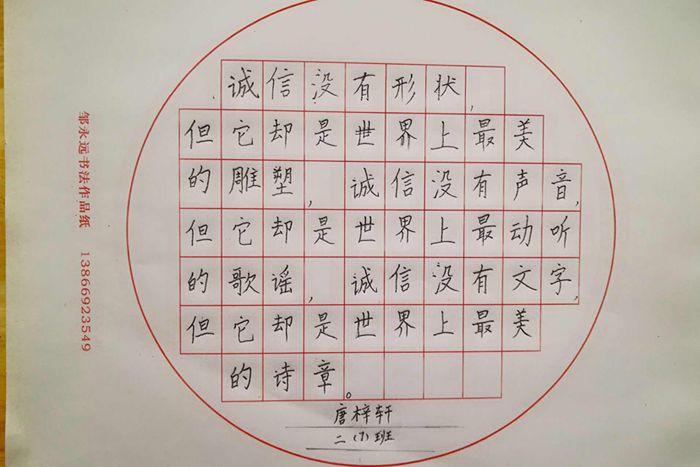 诚信没有形状，
但它却是世界上最美
的雕塑，诚信没有声音，
但它却是世界上最动听
的歌谣，诚信没有文字，
但它却是世界上最美
的诗章。
唐梓轩
二（1）班
邹永远书法作品纸 13866923549